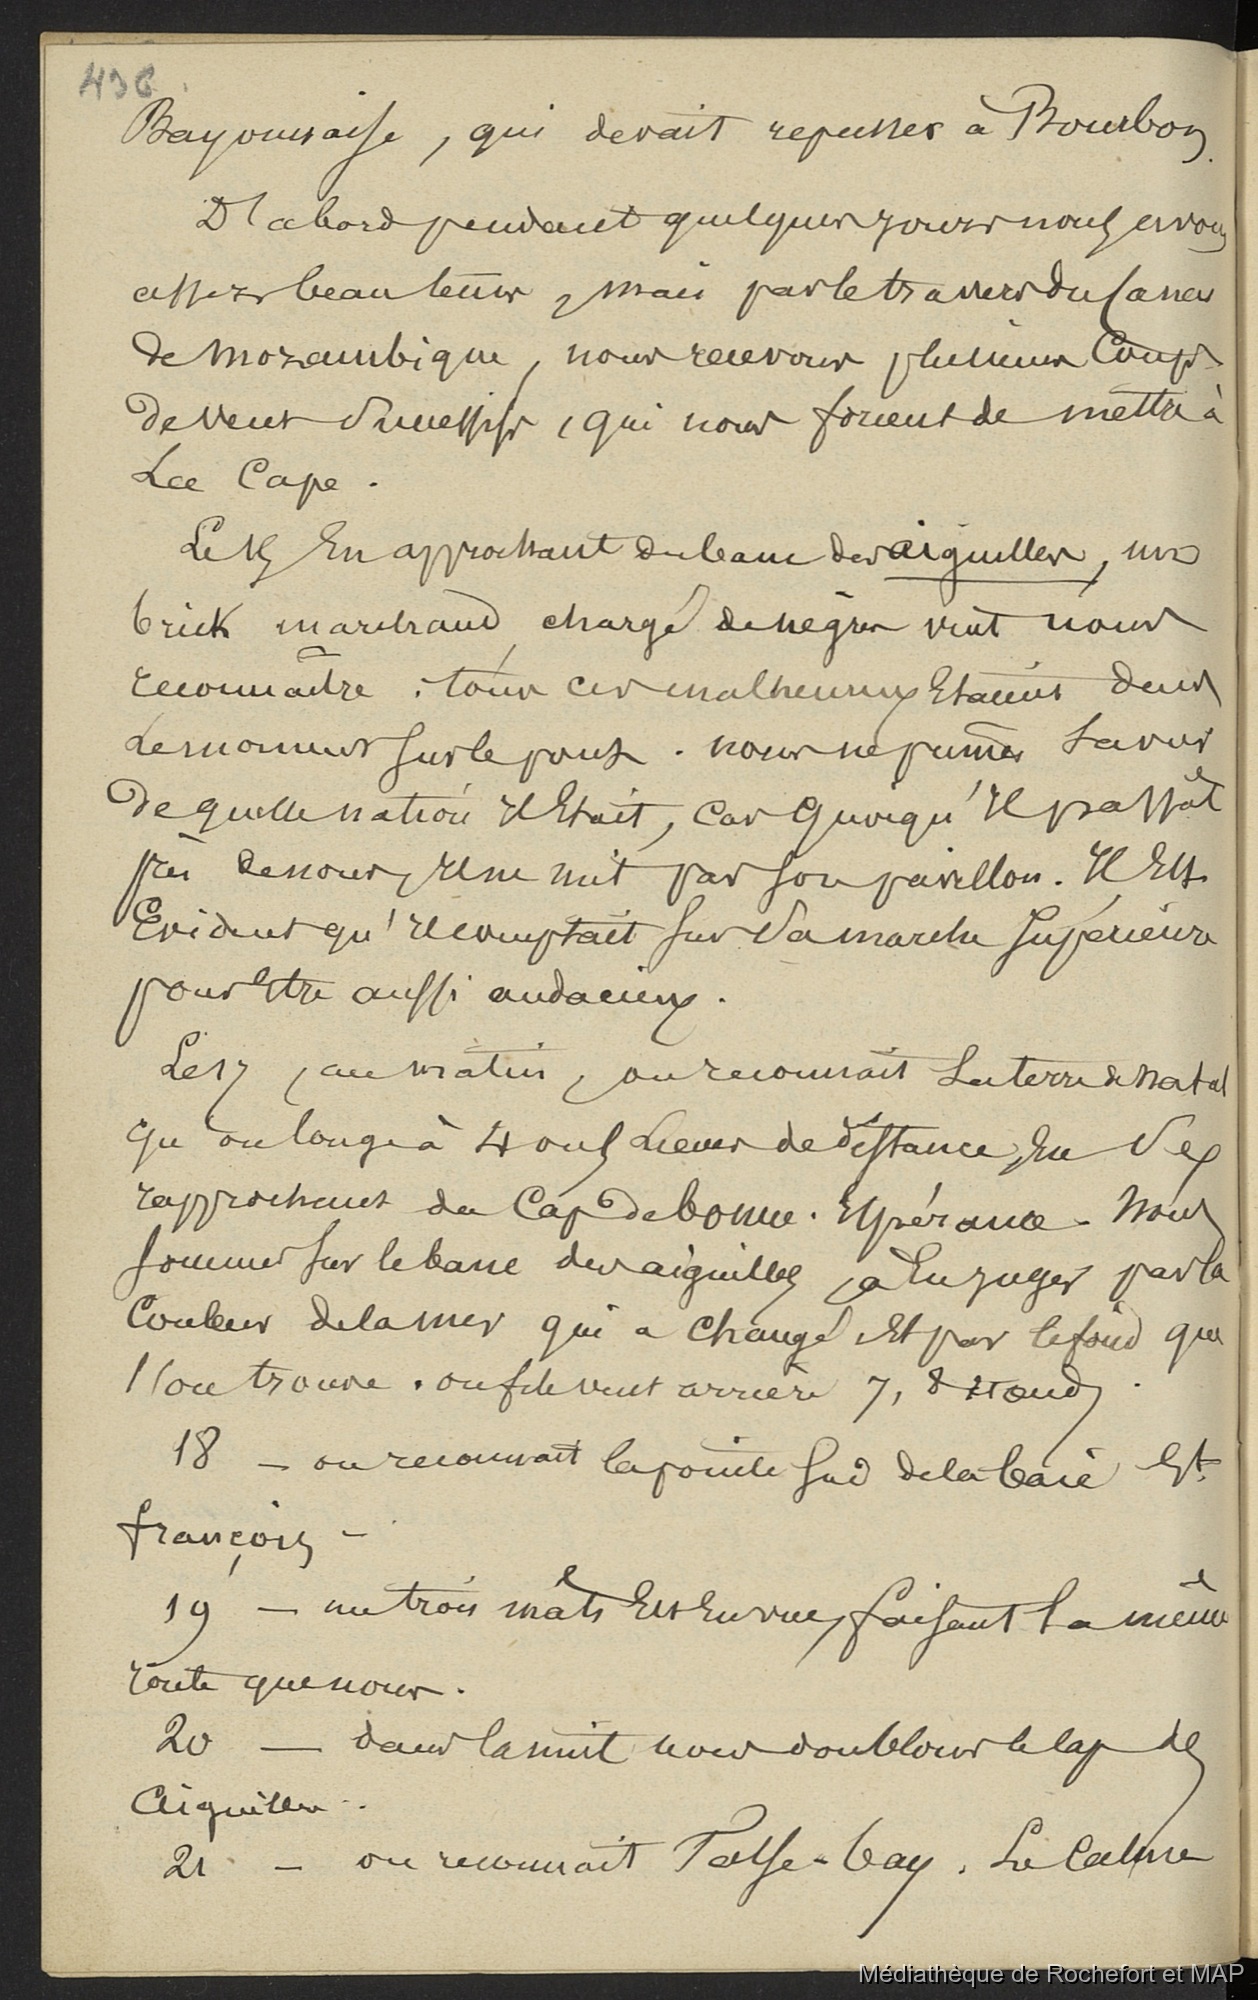 436
Bayonnaise, qui devait repasser à Bourbon.
D'abord pendant quelques jours nous avons
assez beau temps, mais par le travers du Canal
de Mozambique, nous recevons plusieurs Coups
de vent successifs, qui nous forcent de mettre à
La Cape.
Le En approchant du banc des aiguilles, un
brick marchand chargé de nègres vint nous
reconnaître. tous ces malheureux Etaient dans
le moment sur le pont. nous ne pûmes savoir
de quelle nation Il Etait, Car Quoiqu'Il passât
près de nous, Il ne mit pas son pavillon. Il Est
Evident qu'Il comptait sur sa marche supérieure
pour être aussi audacieux.
Le 17, au matin, on reconnait La terre de Natal
qu'on longe à 4 ou 5 Lieues de distance, En
rapprochant du Cap de bonne. Espérance - Nous
sommes sur le banc des aiguilles, à En juger par la
Couleur de la mer qui a changé, Et par le fond que
l'on trouve. on file vent arrière 7, 8 nœuds.
18 — on reconnait la pointe sud de la baie St.
françois —
19 — un trois mâts Est En vue, faisant la même
route que nous.
20 — dans la nuit nous doublons le Cap des
Aiguilles.
21 — on reconnait False-bay. Le Calme
Médiathèque de Rochefort et MAP